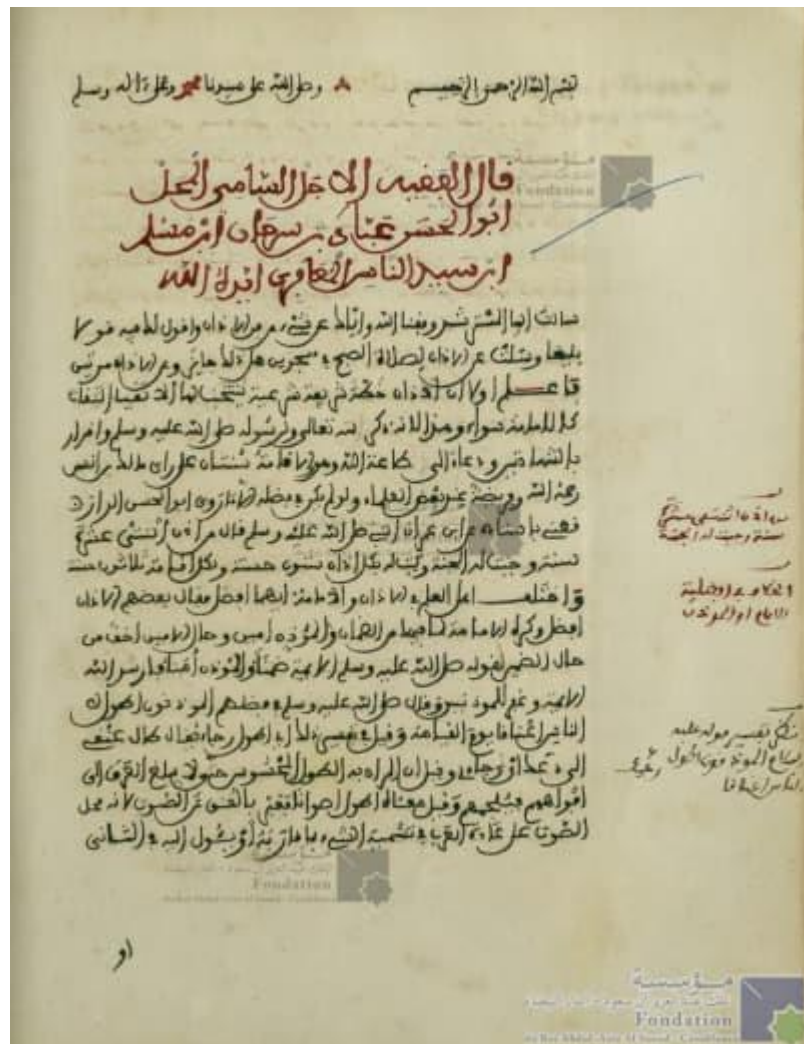 بسم الله الرحمن الرحيم وصلى الله على سيدنا محمد وعلى ءاله وسلم
قال الفقيه الاجل السامي المحل
ابو الحسن بن سرحان ابن مسلم
ابن سيد الناس المعافري ايده الله
سالت ايها وفقنا الله واياك عن شيء من الاذان واقول لك فيه قولا
بليغا وسئلت عن الاذان لصلاة الصبح هل ذلك جائز وعن الاذان مرتين
فاعلم اولا ان الاذان
كذا الاقامة سواء وهو لانه ذكر لله تعالى ولرسوله صلى الله عليه وسلم واقرار
بالشهادتين ودعاء الى طاعة الله وهو والاقامة سنتان على راي مالك بن انس
رحمه الله وفريضة عند بعض العلماء ولو لم يكن في فضله الا ما روى ابو الحسن الرازي
عن ابن عمر ان النبي صلى الله عليه وسلم قال من اذن اثنتي عشرة
سنة وجبت له الجنة وكتب له بكل اذان ستون حسنة وبكل اقامة ثلاثون حسنة
واختلف اهل العلم في الاذان والامامة ايهما افضل فقال بعضهم الاذان
افضل وكره الامامة لما فيها من الضمان والمؤذن امين وحال الامين اخف من
حال الضمين لقوله صلى الله عليه وسلم الايمة ضمناء والمؤذنون امناء فارشد الله
الايمة وغفر للمؤذنين وقال صلى الله عليه وسلم في فضلهم المؤذنون اطول
الناس اعناقا يوم القيامة وقيل في تفسير هذا اطول رجاء يقال طال عنقي
الى وقيل ان المراد به الطول المحسوس حتى لا يبلغ العرق الى
افواههم فيلجمهم وقيل معناه اطول اصواتا فعبر بالعنق عن الصوت لانه محل
الصوت على عادة العرب في تسمية الشيء بما قاربه او يئول اليه
او
من اذن اثنتي عشرة
سنة وجبت له الجنة
الكلام في افضلية
الامام او المؤذن
تفسير قوله عليه
السلام المؤذنون اطول
الناس اعناقا
مـؤسـسـة
Foundation